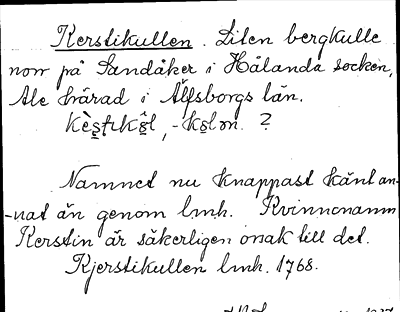 Kerstikullen. Liten bergkulle
norr på Sandåker i Hålanda socken,
Ale härad i Älfsborgs län.
?
Namnet nu knappast känt an-
-nat än genom lmh. Kvinnonamn
Kerstin är säkerligen orsak till det.
Kjerstikullen lmh. 1768.